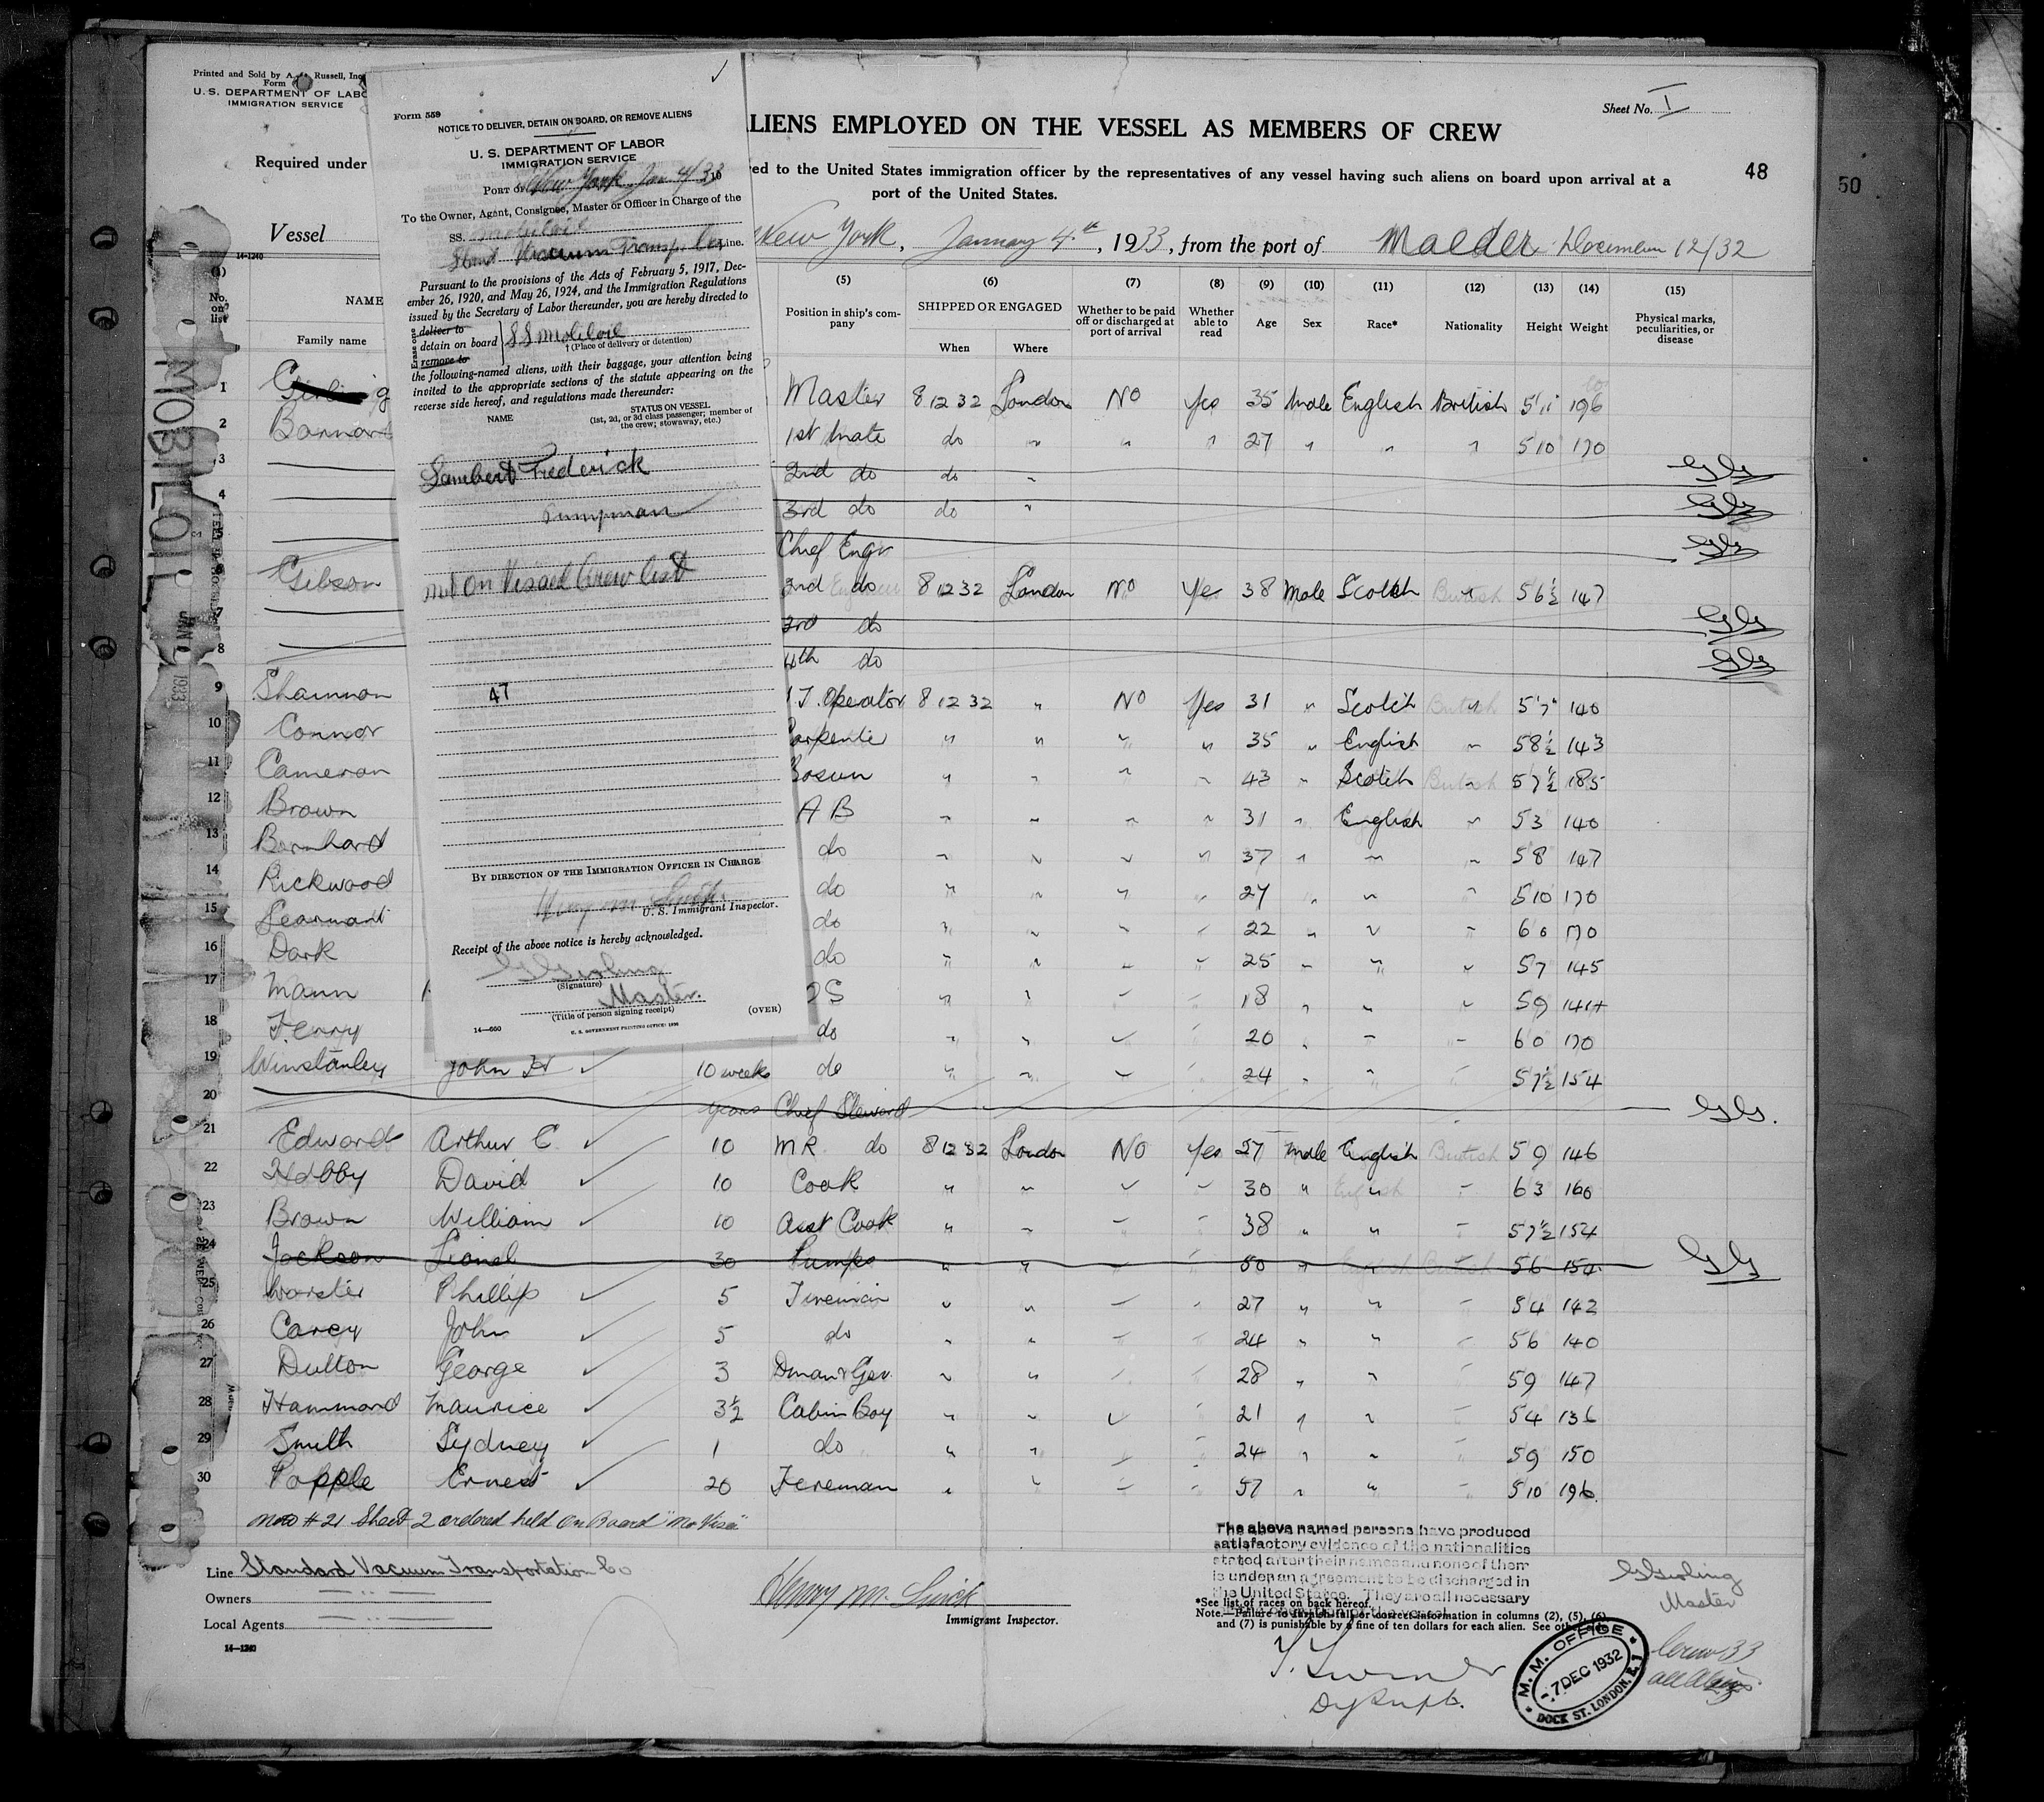 Printed and Sold by A. Russell, Inc
Form
U. S. DEPARTMENT OF LABO
IMMIGRATION SERVICE
Required under
Vessel
14-1240
Sheet No. I
LIENS EMPLOYED ON THE VESSEL AS MEMBERS OF CREW
ed to the United States immigration officer by the representatives of any vessel having such aliens on board upon arrival at a
port of the United States.
48
50
New York, January 4th, 1933, from the port of Maeder December 12/32
✓
Form 559
NOTICE TO DELIVER, DETAIN ON BOARD, OR REMOVE ALIENS
U. S. DEPARTMENT OF LABOR
IMMIGRATION SERVICE
PORT OF New York Jan 4/33 19
To the Owner, Agent, Consignee, Master or Officer in Charge of the
SS. Mobiloil
Stand Vacuum Transp. Co Line.
Pursuant to the provisions of the Acts of February 5, 1917, Dec-
ember 26, 1920, and May 26, 1924, and the Immigration Regulations
issued by the Secretary of Labor thereunder, you are hereby directed to
Erase one
deliver to
detain on board
remove to
SS Mobiloil
†(Place of delivery or detention)
the following-named aliens, with their baggage, your attention being
invited to the appropriate sections of the statute appearing on the
reverse side hereof, and regulations made thereunder:
NAME
STATUS ON VESSEL
(1st, 2d, or 3d class passenger; member of
the crew; stowaway, etc.)
Lambert Frederick
Pumpman
not On Visaed Crew list
47
BY DIRECTION OF THE IMMIGRATION OFFICER IN CHARGE
Henry M Smith
U. S. Immigrant Inspector.
Receipt of the above notice is hereby acknowledged.
G Girling
(Signature)
Master.
(Title of person signing receipt)
(OVER)
14—660
U. S. GOVERNMENT PRINTING OFFICE: 1930
MOBILOIL
JAN 1933
(1) (5) (6) (7) (8) (9) (10) (11) (12) (13) (14) (15)
No. on list
NAME
Family name
Position in ship's company
SHIPPED OR ENGAGED
When
Where
Whether to be paid off or discharged at port of arrival
Whether able to read
Age
Sex
Race*
Nationality
Height
Weight
Physical marks, peculiarities, or disease
1 Girling Master 8 12 32 London No Yes 35 Male English British 5'11 196
2 Barnard 1st Mate do " " " 27 " " " 5 10 170
3 2nd do do " GG
4 3rd do do " GG
5 Chief Engr GG
6 Gibson 2nd do 8 12 32 London No Yes 38 Male Scotch British 5 6½ 147
7 3rd do GG
8 4th do GG
9 Shannon T. Operator 8 12 32 " No Yes 31 " Scotch British 5'7" 140
10 Connor Carpenter " " " " 35 " English " 5 8½ 143
11 Cameron Bosun " " " " 43 " Scotch British 5 7½ 185
12 Brown A B " " " " 31 " English " 5 3 140
13 Barnhard do " " " " 37 " " " 5 8 147
14 Rickwood do " " " " 27 " " " 5 10 170
15 Learmant do " " " " 22 " " " 6 0 170
16 Dark do " " " " 25 " " " 5 7 145
17 Mann OS " " " " 18 " " " 5 9 144
18 Ferry do " " " " 20 " " " 6 0 170
19 Winstanley John H ✓ 10 weeks do " " " " 24 " " " 5 7½ 154
20 years Chief Steward GG.
21 Edwards Arthur C. ✓ 10 MR do 8 12 32 London No Yes 27 Male English British 5 9 146
22 Hobby David ✓ 10 Cook " " " " 30 " English " 6 3 160
23 Brown William ✓ 10 Asst Cook " " " " 38 " " " 5 7½ 154
24 Jackson Lionel 30 Pumps " " " " 50 " " " 5 6 154 GG
25 Worster Phillip ✓ 5 Fireman " " " " 27 " " " 5 4 142
26 Carey John ✓ 5 do " " " " 24 " " " 5 6 140
27 Dutton George ✓ 3 Dman & Gsr. " " " " 28 " " " 5 9 147
28 Hammond Maurice ✓ 3½ Cabin Boy " " " " 21 " " " 5 4 136
29 Smith Sydney ✓ 1 do " " " " 24 " " " 5 9 150
30 Popple Ernest ✓ 20 Fireman " " " " 57 " " " 5 10 196.
#21 Sheet 2 ordered held on Board "No Visa"
Line Standard Vacuum Transportation Co
Owners " "
Local Agents " "
14—1240
Henry M. Smith
Immigrant Inspector.
The above named persons have produced
satisfactory evidence of the nationalities
stated after their names and none of them
is under an agreement to be discharged in
the United States. They are all necessary
*See list of races on back hereof.
Note.—Failure to furnish full or correct information in columns (2), (5), (6),
and (7) is punishable by a fine of ten dollars for each alien. See other
G Girling
Master
Dy Supt.
M. M. OFFICE
-7 DEC 1932
DOCK ST. LONDON, E. 1
Crew 33
all Aliens